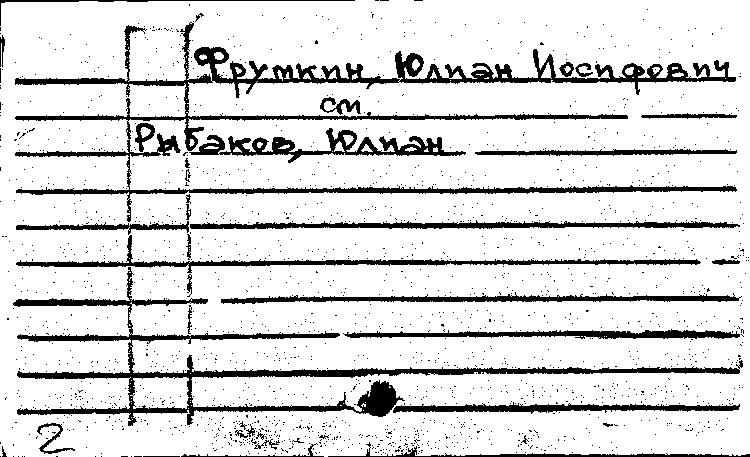 Фрумкин, Юлиан Иосифович
см.
Рыбаков, Юлиан
2